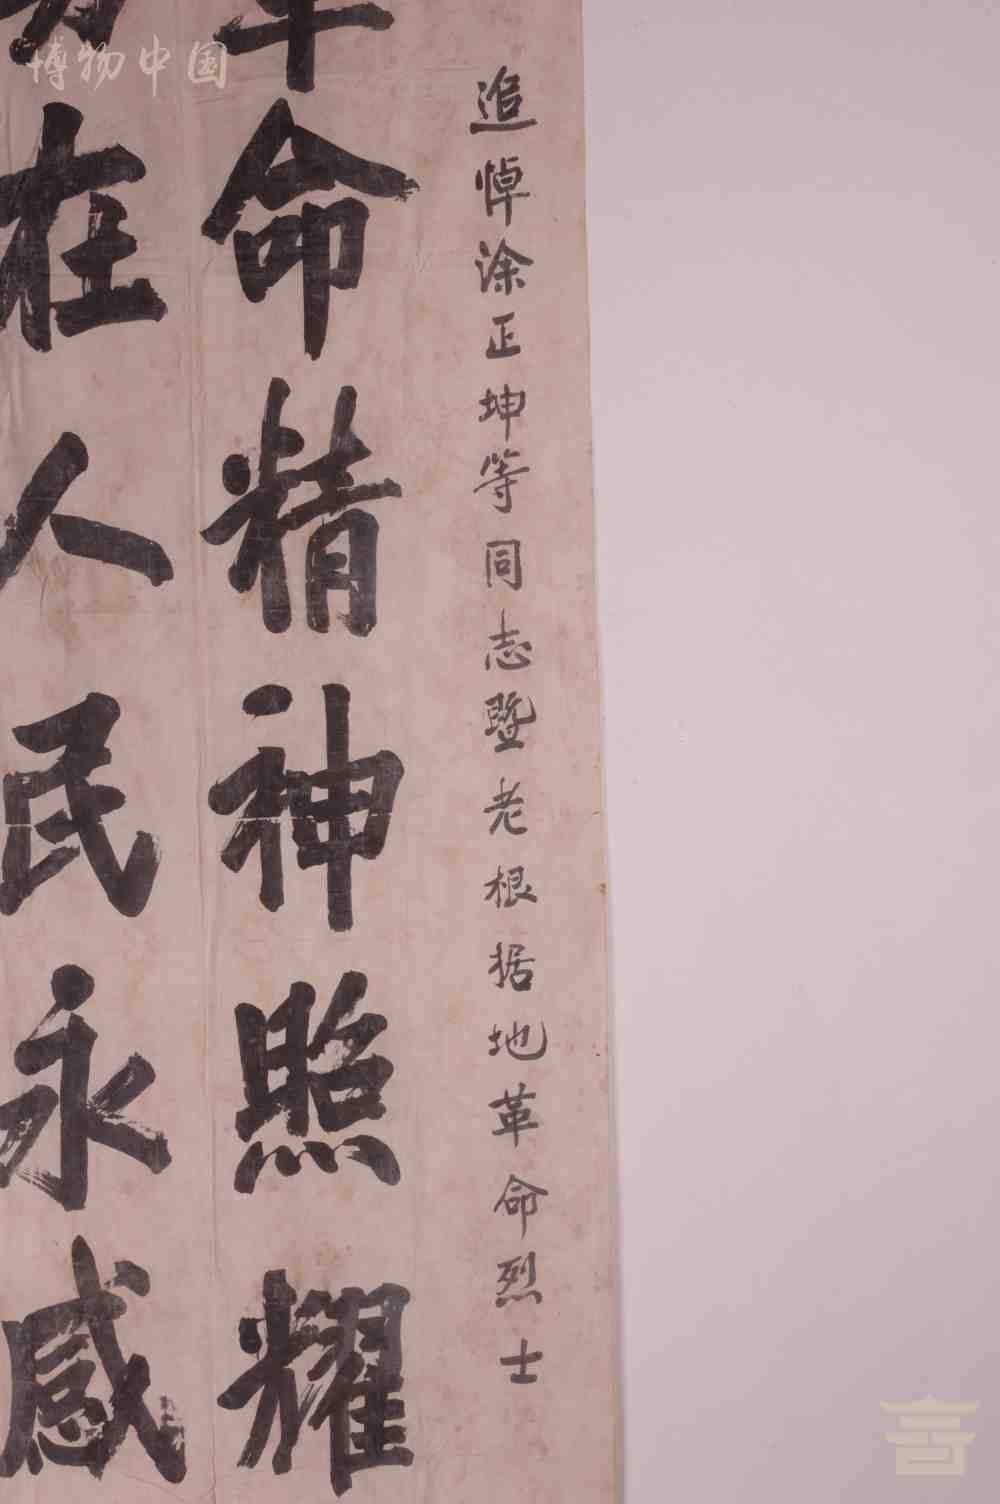 追悼涂正坤等同志暨老根据地革命烈士
命精神照耀
在人民永感
博物中国